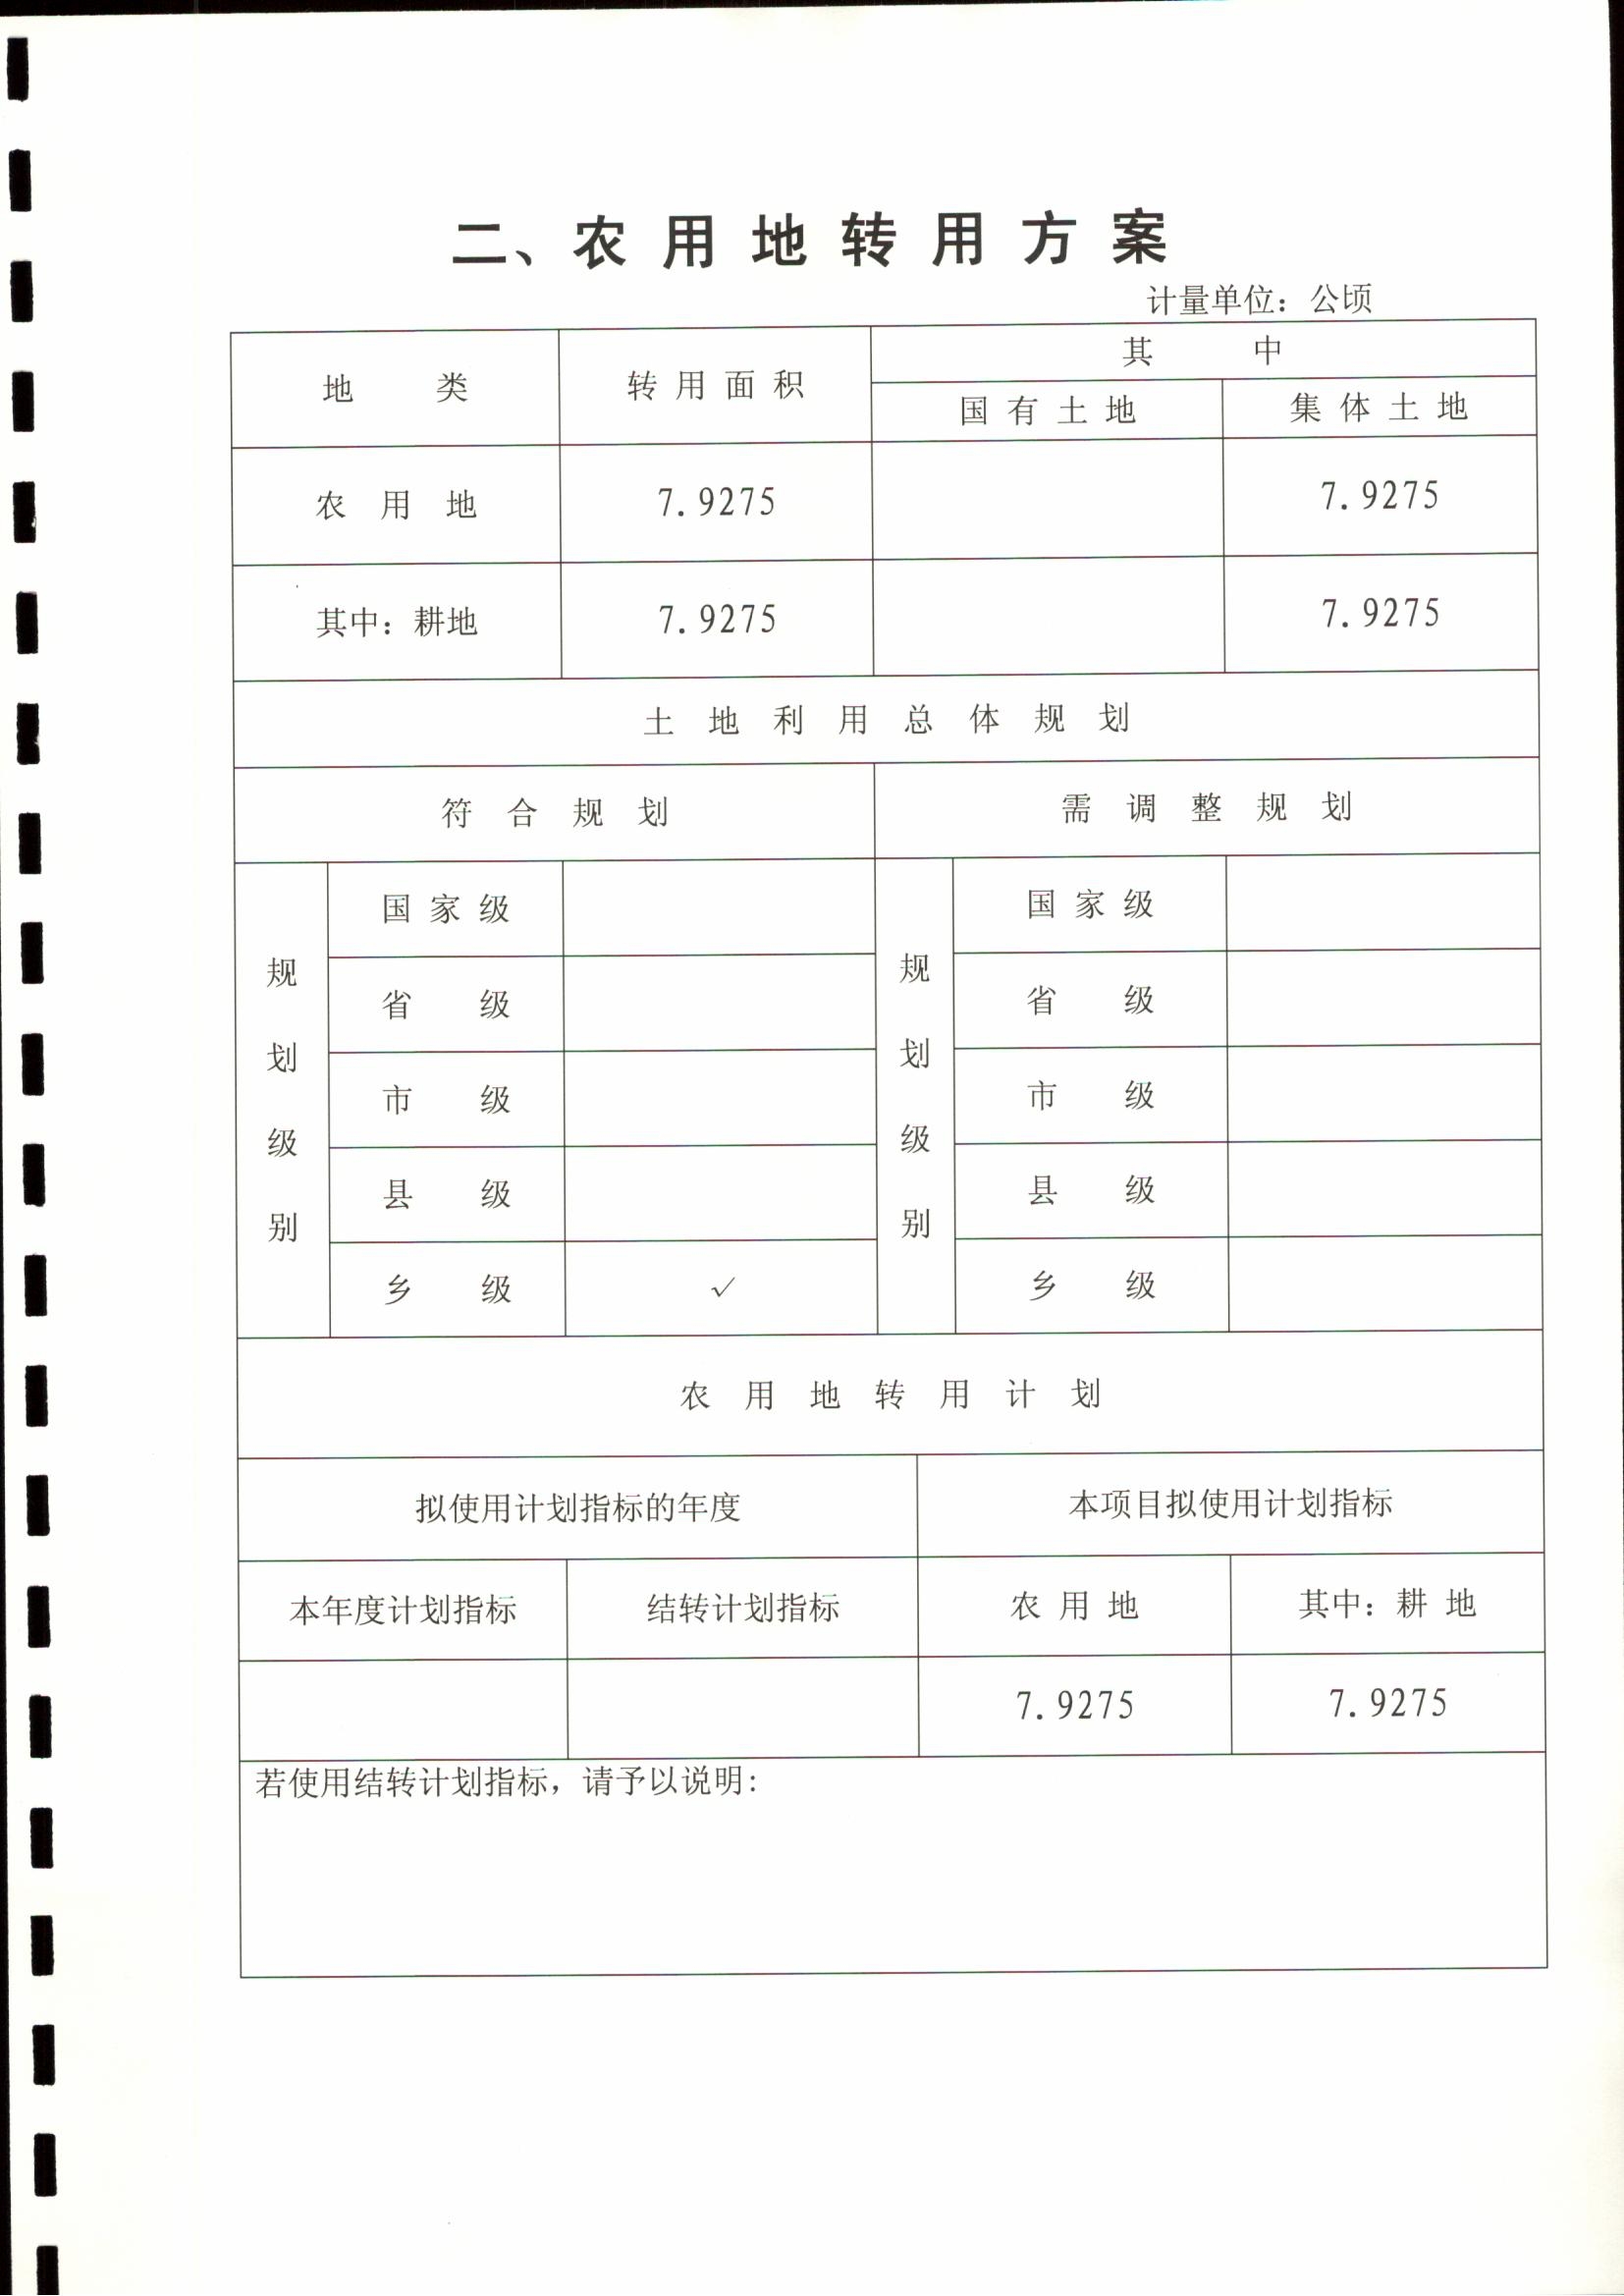 二、农用地转用方案
计量单位：公顷
地类 转用面积 其中
国有土地 集体土地
农用地 7.9275 7.9275
其中：耕地 7.9275 7.9275
土地利用总体规划
符合规划 需调整规划
规划级别 国家级 规划级别 国家级
省级 省级
市级 市级
县级 县级
乡级 √ 乡级
农用地转用计划
拟使用计划指标的年度 本项目拟使用计划指标
本年度计划指标 结转计划指标 农用地 其中：耕地
7.9275 7.9275
若使用结转计划指标，请予以说明：